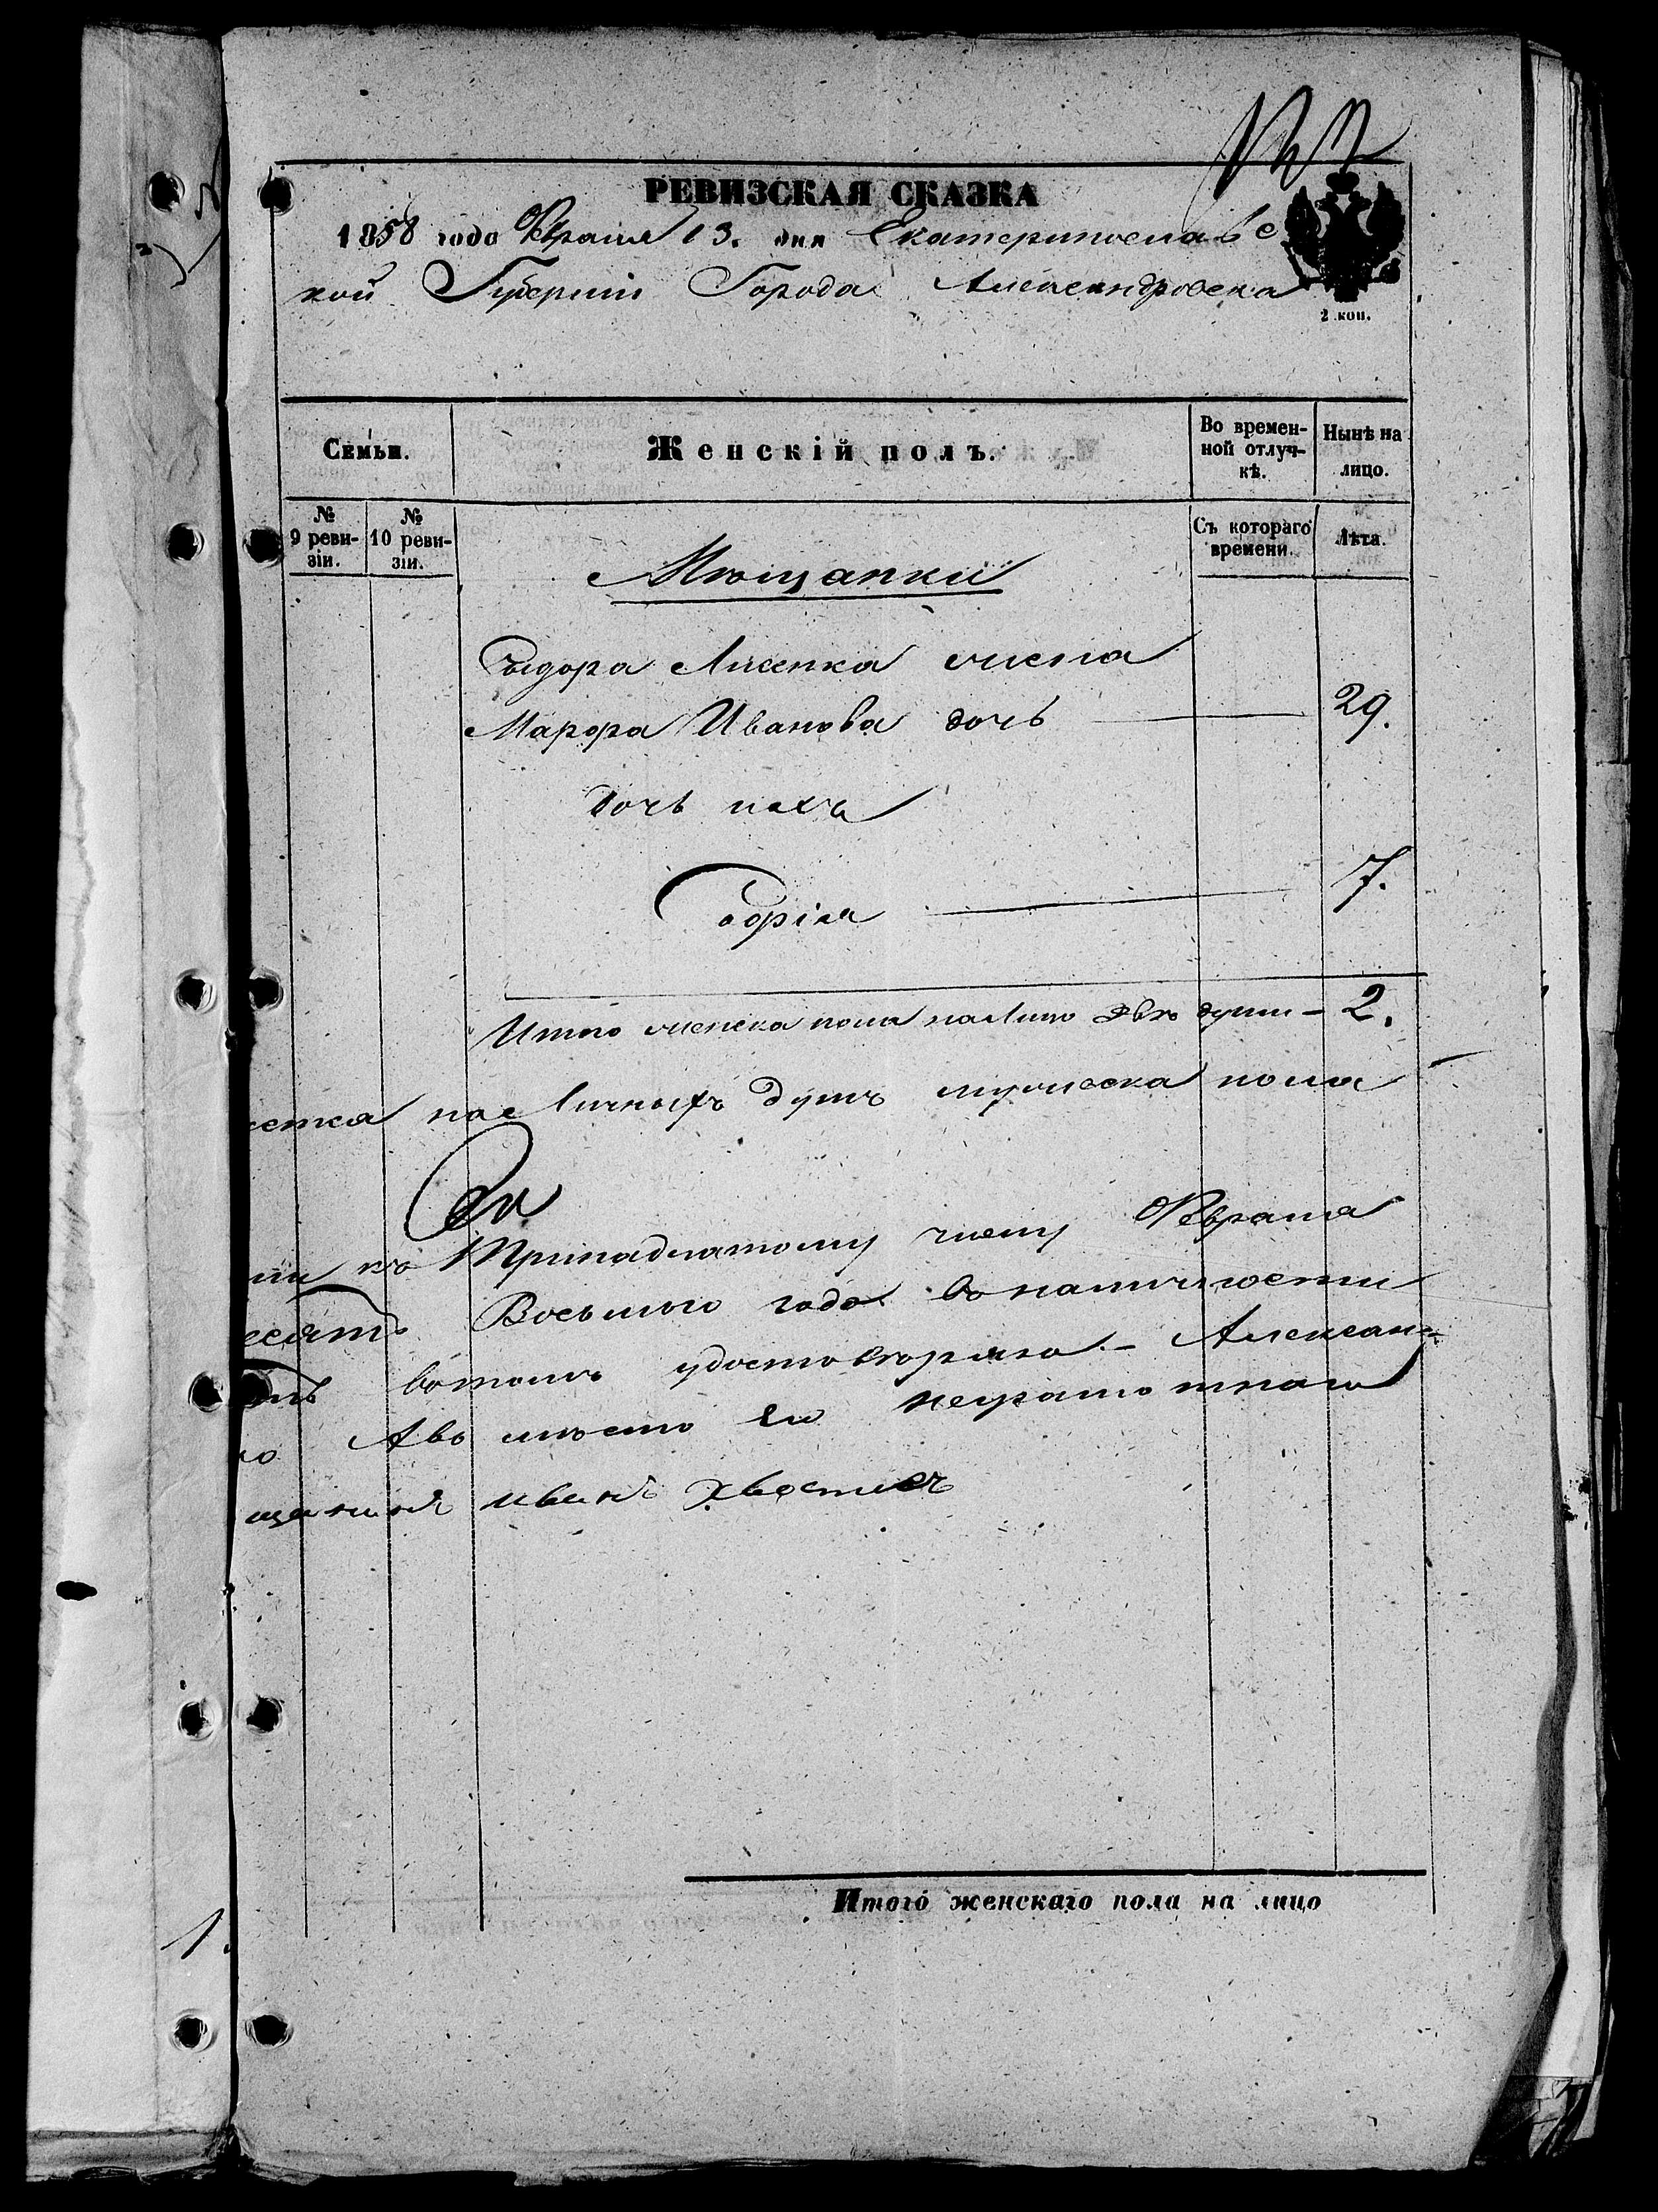 РЕВИЗСКАЯ СКАЗКА
1858 года Февраля 13. дня Екатеринославс
кой Губерніи Города Александровска
2 коп.
Семьи.
Женскій полъ.
Во времен-
ной отлуч-
кѣ.
Нынѣ на
лицо.
№
9 реви-
зіи.
№
10 реви-
зіи.
Съ котораго
времени.
Лѣта.
Мѣщанки
Сыдора Лисенка жена
Марфа Иванова дочь 29.
дочь ихъ
Софія 7.
Итого женска пола налицо двѣ души - 2.
наличныхъ душъ мужеска пола
къ Тринадцатому числу Февраля
десятъ Восьмого года въ наличности
вотомъ удостоверяю. - Алексан-
Авъ место его неграмотнаго
щанинъ иванъ
1.
Итого женскаго пола на лицо